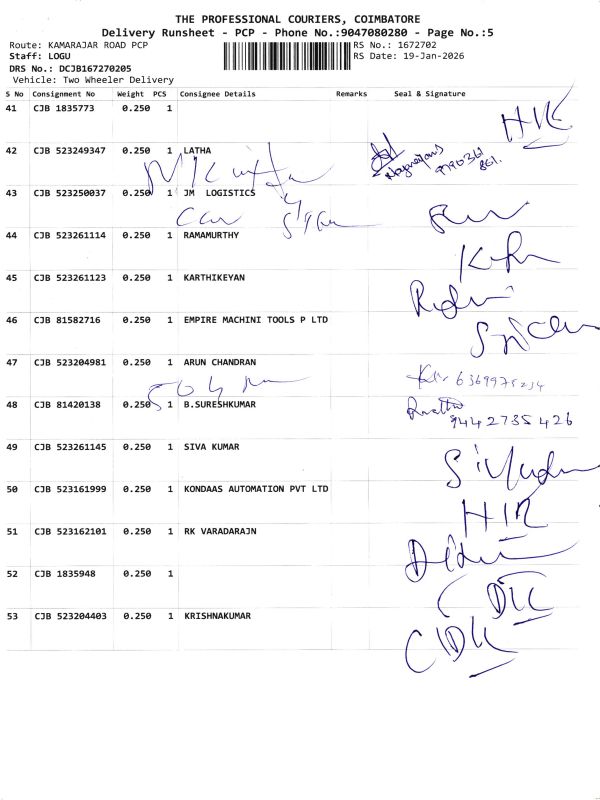 THE PROFESSIONAL COURIERS, COIMBATORE
Delivery Runsheet - PCP - Phone No.:9047080280 - Page No.:5
Route: KAMARAJAR ROAD PCP RS No.: 1672702
Staff: LOGU RS Date: 19-Jan-2026
DRS No.: DCJB167270205
Vehicle: Two Wheeler Delivery
S No Consignment No Weight PCS Consignee Details Remarks Seal & Signature
41 CJB 1835773 0.250 1
42 CJB 523249347 0.250 1 LATHA
43 CJB 523250037 0.250 1 JM LOGISTICS
44 CJB 523261114 0.250 1 RAMAMURTHY
45 CJB 523261123 0.250 1 KARTHIKEYAN
46 CJB 81582716 0.250 1 EMPIRE MACHINI TOOLS P LTD
47 CJB 523204981 0.250 1 ARUN CHANDRAN
48 CJB 81420138 0.250 1 B.SURESHKUMAR
9442735426
49 CJB 523261145 0.250 1 SIVA KUMAR
50 CJB 523161999 0.250 1 KONDAAS AUTOMATION PVT LTD
51 CJB 523162101 0.250 1 RK VARADARAJN
52 CJB 1835948 0.250 1
53 CJB 523204403 0.250 1 KRISHNAKUMAR